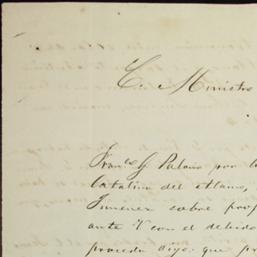 C. Ministro
Franco G Palano por l
Catalina del Alamo,
Jimenez sobre prop
ante V con el debido
proceda digo: que pr